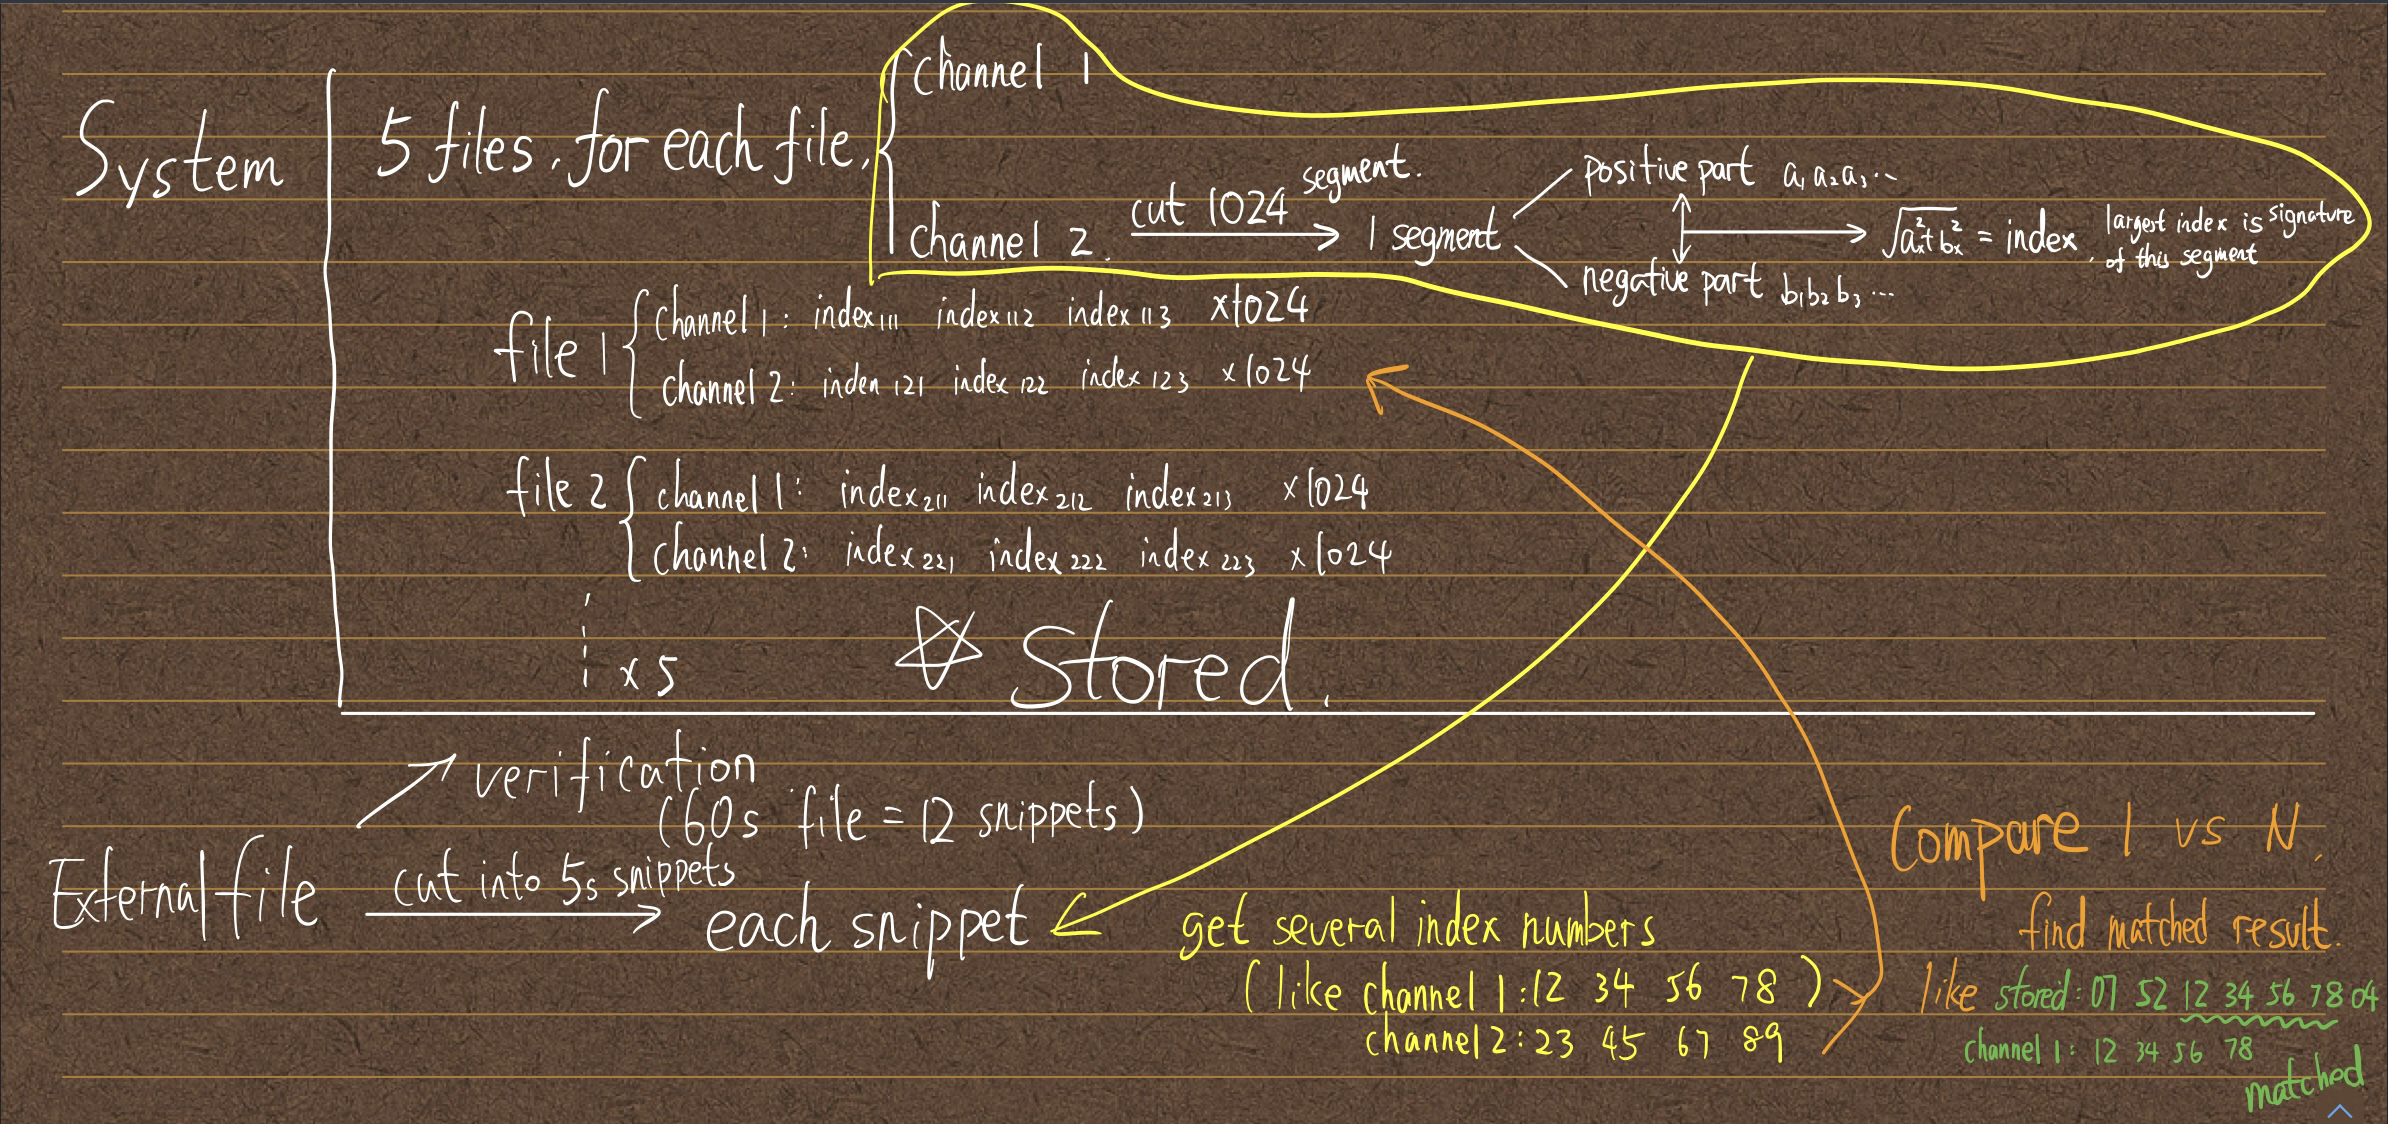 System
5 files, for each file,
channel 1
channel 2.
cut 1024 segment.
1 segment
positive part a₁ a₂ a₃ ...
negative part b₁ b₂ b₃ ...
√aₓ²+bₓ² = index,
largest index is signature
of this segment
file 1
channel 1: index 111 index 112 index 113 x1024
channel 2: inden 121 index 122 index 123 x1024
file 2
channel 1: index 211 index 212 index 213 x1024
channel 2: index 221 index 222 index 223 x1024
x 5
☆ Stored.
verification
(60s file = 12 snippets)
External file
cut into 5s snippets
each snippet
get several index numbers
(like channel 1: 12 34 56 78)
channel 2: 23 45 67 89
Compare 1 vs N,
find matched result.
like stored: 07 52 12 34 56 78 04
channel 1: 12 34 56 78
matched